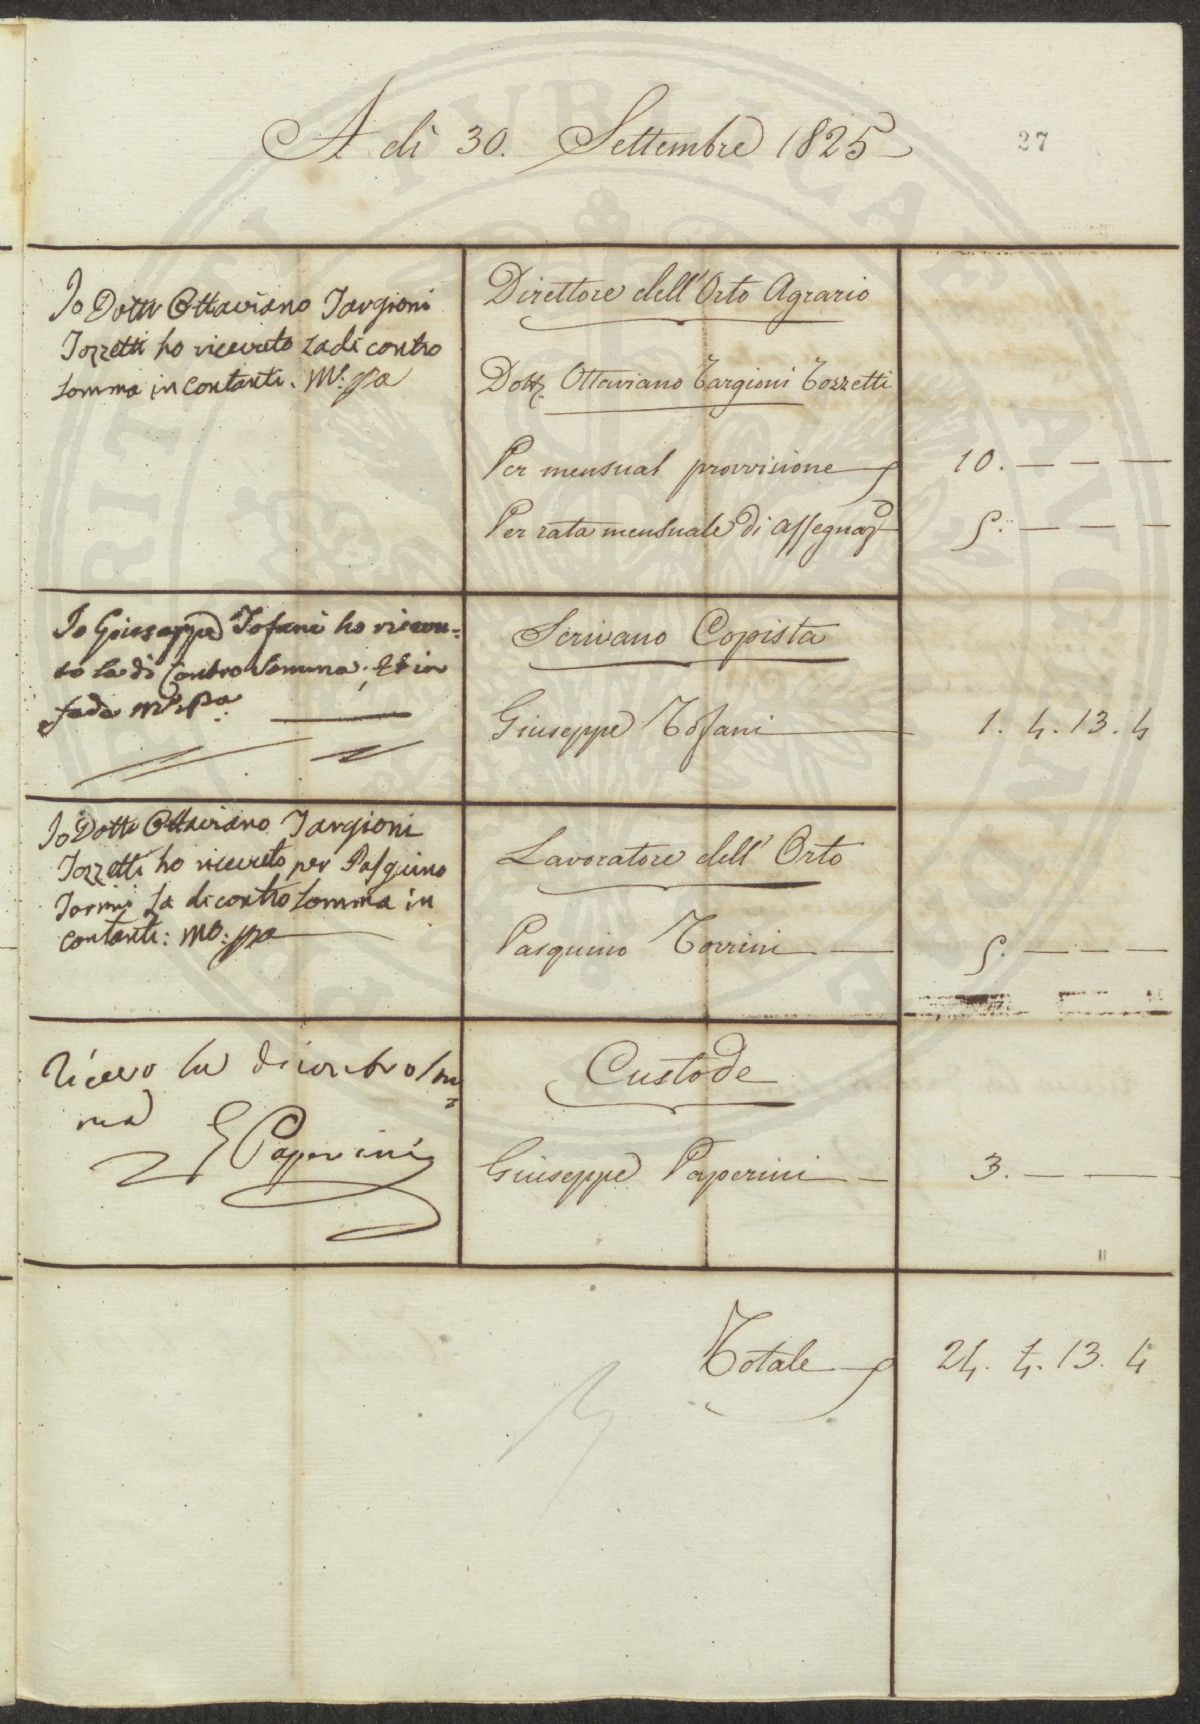 A di 30. Settembre 1825
27
Io Dottr Ottaviano Targioni
Tozzetti ho ricevuto la di contro
Somma in contanti. Mo: ppa
Direttore dell'Orto Agrario
Dott. Ottaviano Targioni Tozzetti
Per mensual provvisione 10. — — —
Per rata mensuale di Assegnaz 5. — — —
Io Giuseppe Tofani ho ricevu=
to la di Contro Somma. Et in
fede mo. pa.
Scrivano Copista
Giuseppe Tofani 1. 4. 13. 4
Io Dottr Ottaviano Targioni
Tozzetti ho ricevuto per Pasquino
Torrini la di contro Somma in
contanti: mo: ppa
Lavoratore dell' Orto
Pasquino Torrini — 5. — — —
Ricevo la di contro som=
ma
G Paperini
Custode
Giuseppe Paperini — 3. — —
Totale 24. 4. 13. 4